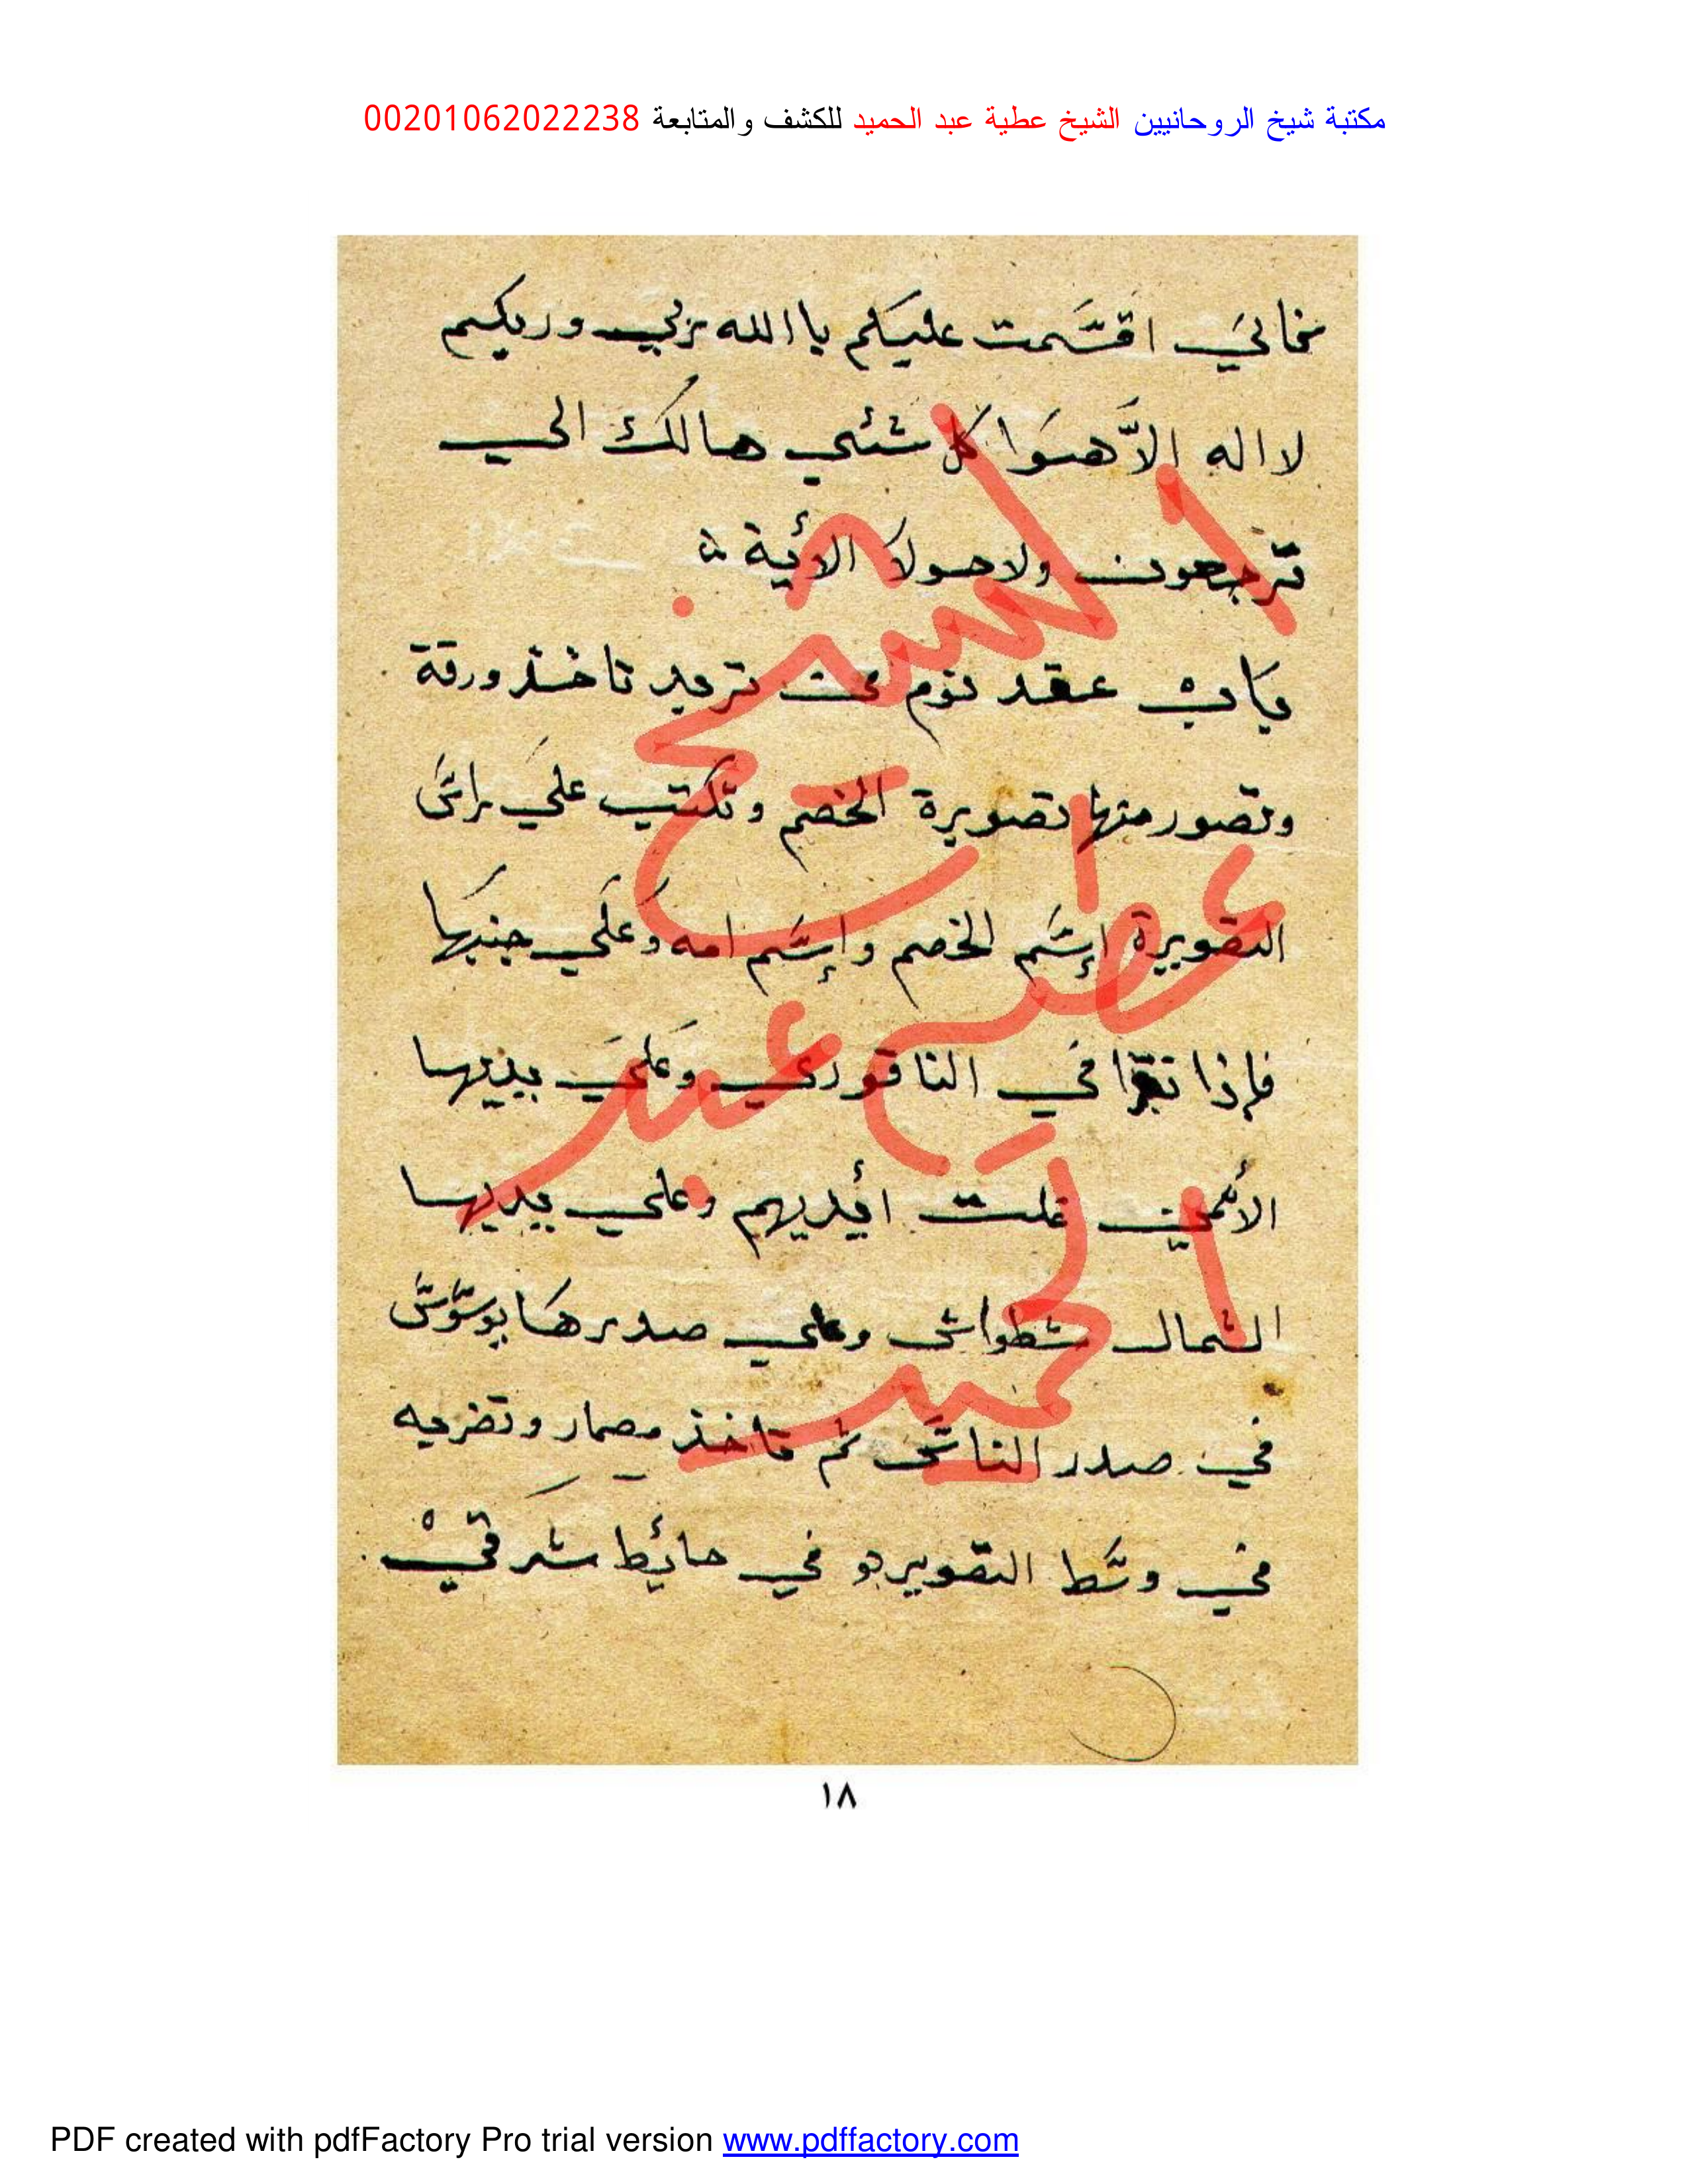 مكتبة شيخ الروحانيين الشيخ عطية عبد الحميد للكشف والمتابعة 00201062022238
اقسمت عليكم ياالله بربي وربكم
لااله الاّ هسَوا كل شئي هالك الي
ترجعون ولاحولا الأية
باب عقد نوم تريد تاخذ ورقة
وتصور منها تصويرة الخصم وتكتب علي راس
التصويرة إسم الخصم وإسم امه وعلي جنبها
فإذا نقرا في الناقوري وعلي يديها
الأيمين غلت أيديهم وعلي يديها
الشمال شطواش وعلي صدرها يوسوس
في صدر الناس ثم تاخذ مصمار وتضربه
في وسط التصويره في حائيط شرقي
الشيخ
عطية
عبد
الحميد
١٨
PDF created with pdfFactory Pro trial version www.pdffactory.com